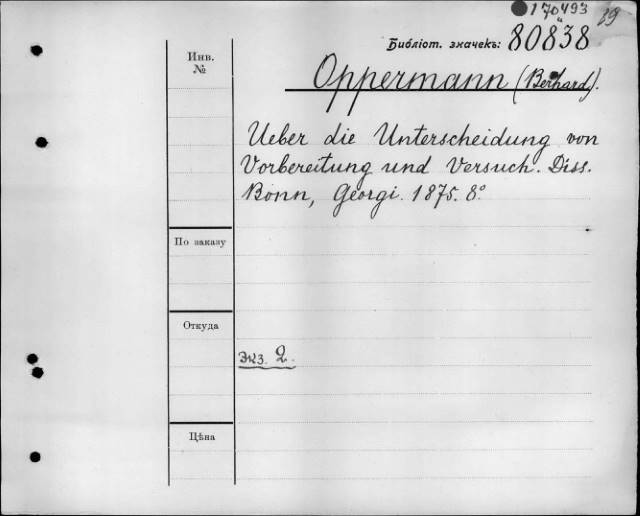 170493
19
и
Библіот. значекъ: 80838
Инв.
№
Oppermann (Bernhard).
Ueber die Unterscheidung von
Vorbereitung und Versuch. Diss.
Bonn, Georgi. 1875. 8°
По заказу
Откуда
Экз. 2.
Цѣна